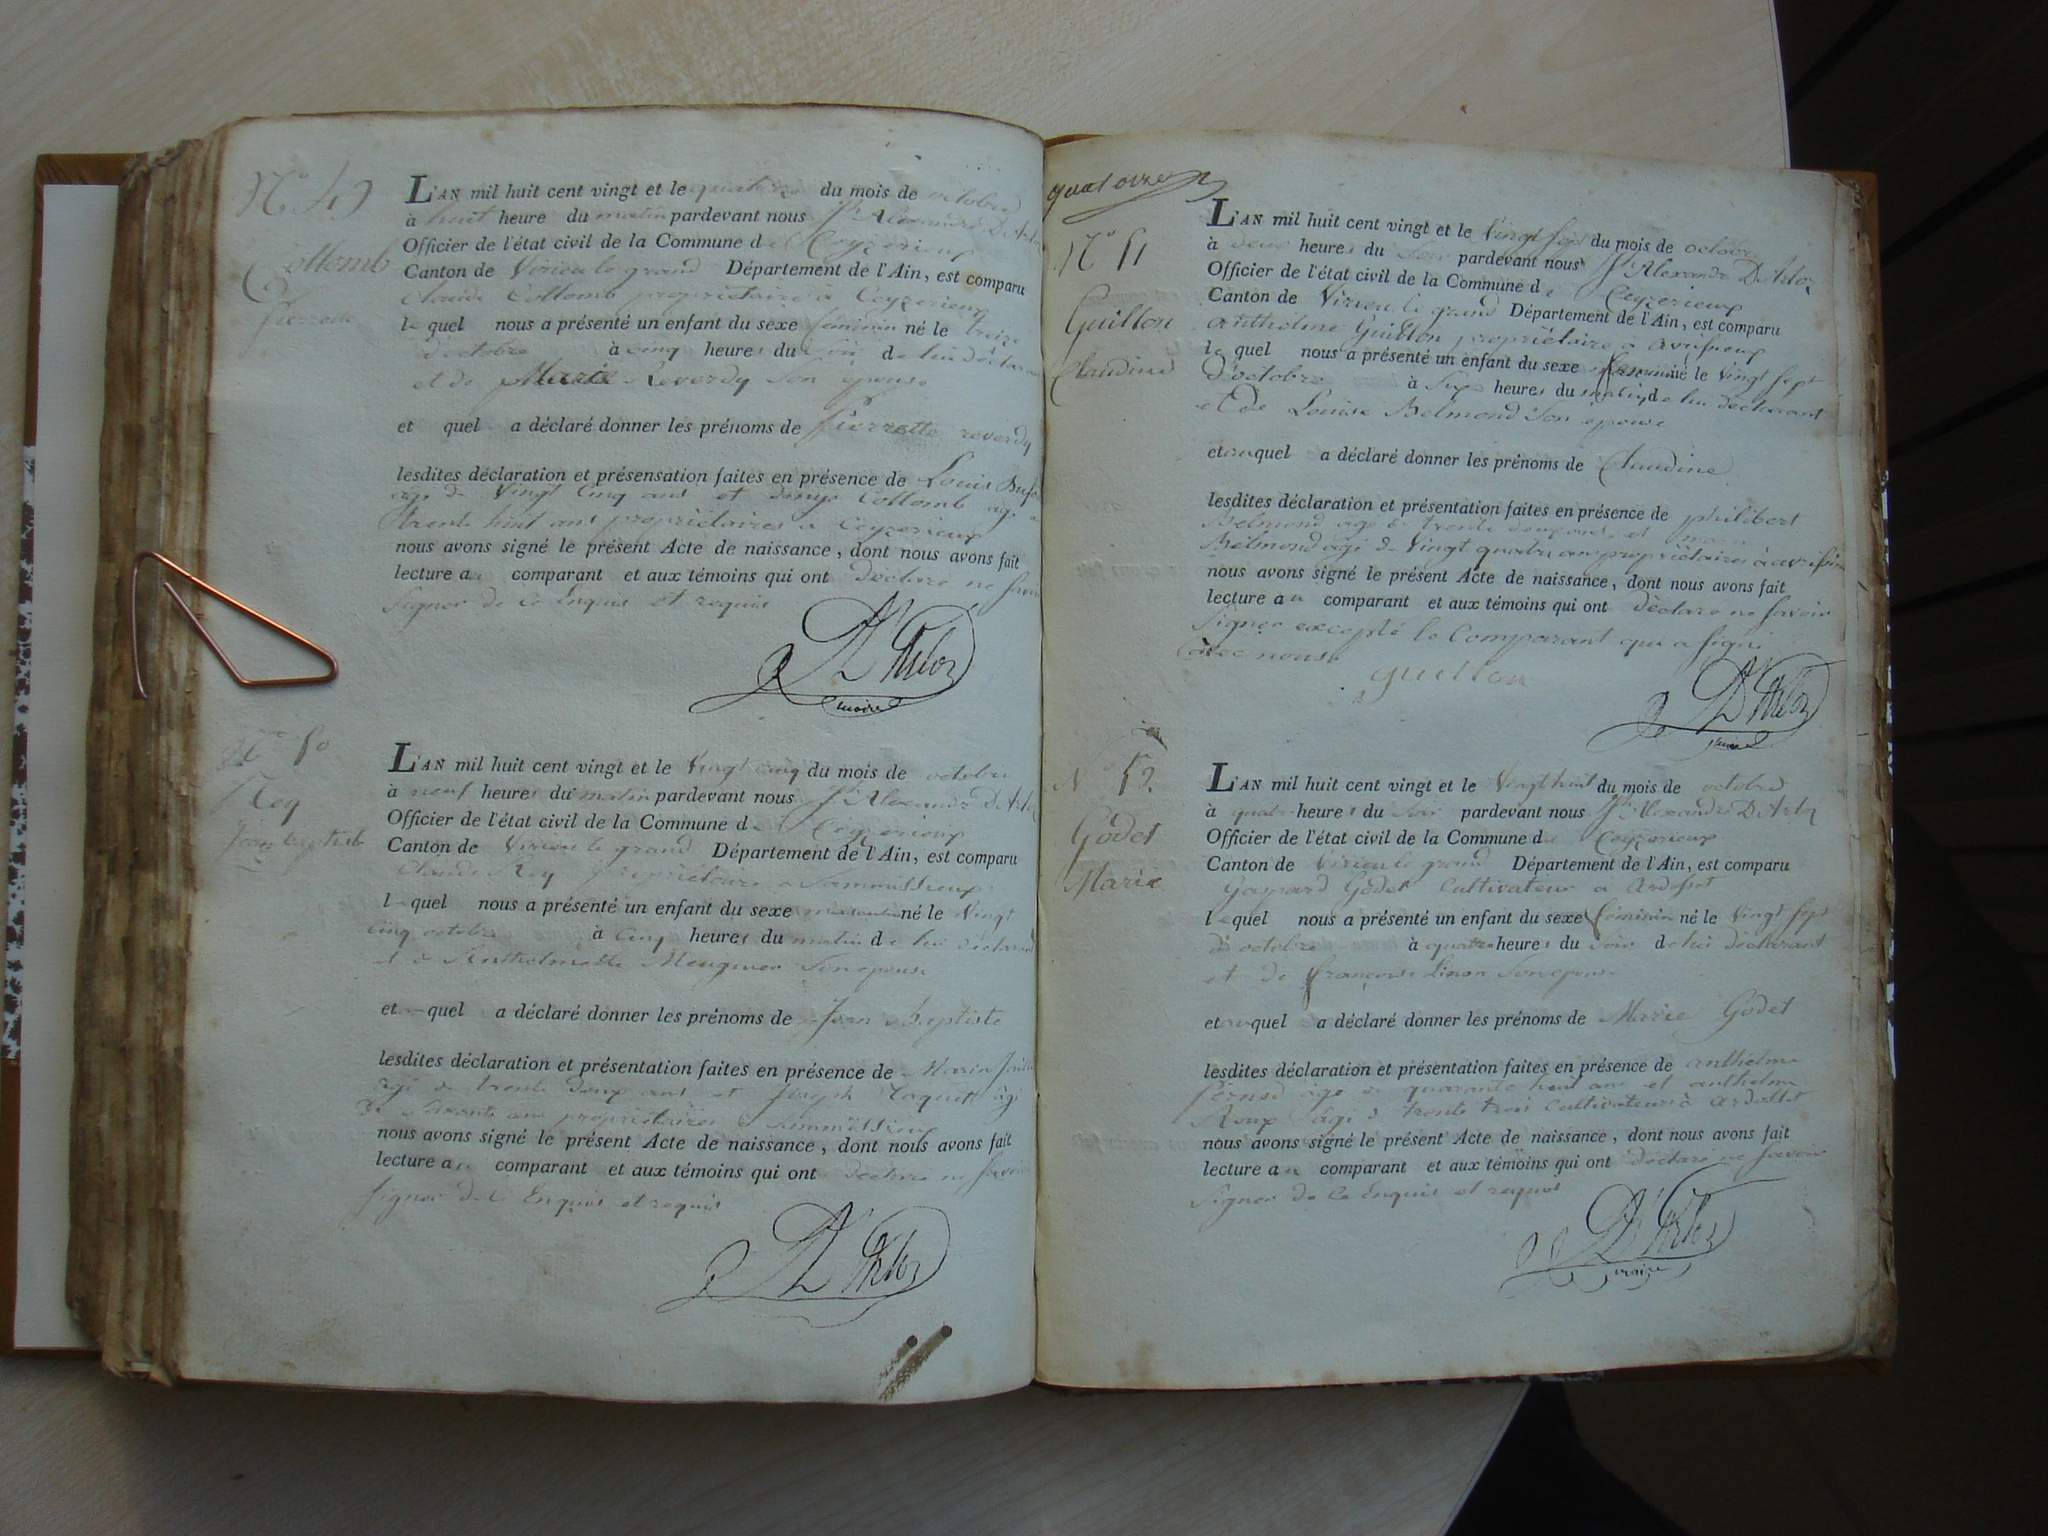 N° 49
Collomb
Pierrette
L'AN mil huit cent vingt et le quatorze du mois de octobre
à huit heure du matin pardevant nous Jh Alexandre D'Arloz
Officier de l'état civil de la Commune de Ceyzerieux
Canton de Virieu le grand Département de l'Ain, est comparu
Claude Collomb propriétaire à Ceyzerieux
le quel nous a présenté un enfant du sexe féminin né le treize
d'octobre à cinq heures du soir de lui déclarant
et de Marie Reverdy Son epouse
et quel a déclaré donner les prénoms de Pierrette reverdy
lesdites déclaration et présensation faites en présence de Louis
agé de Vingt Cinq ans et denys Collomb agé de
trente huit ans propriétaires a Ceyzerieux
nous avons signé le présent Acte de naissance, dont nous avons fait
lecture au comparant et aux témoins qui ont déclaré ne savoir
Signer de ce Enquis et requis
D'Arloz
maire
N° 50
Rey
Jean Baptiste
L'AN mil huit cent vingt et le Vingt cinq du mois de octobre
à neuf heures du matin pardevant nous Jh Alexandre D'Arloz
Officier de l'état civil de la Commune de Ceyzerieux
Canton de Virieu le grand Département de l'Ain, est comparu
Claude Rey propriétaire a
le quel nous a présenté un enfant du sexe masculin né le Vingt
cinq octobre à Cinq heures du matin de lui déclarant
et de Anthelmette Son epouse
et quel a déclaré donner les prénoms de Jean Baptiste
lesdites déclaration et présentation faites en présence de Marin
agé de trente Deux ans et Joseph agé
de Soixante ans propriétaires a
nous avons signé le présent Acte de naissance, dont nous avons fait
lecture au comparant et aux témoins qui ont déclaré ne savoir
signer de Ce Enquis et requis
D'Arloz
quatorze
N° 51
Guillon
Claudine
L'AN mil huit cent vingt et le Vingt sept du mois de octobre
à deux heures du Soir pardevant nous Jh Alexandre D'Arloz
Officier de l'état civil de la Commune de Ceyzerieux
Canton de Virieu le grand Département de l'Ain, est comparu
anthelme Guillon propriétaire a avrissieux
le quel nous a présenté un enfant du sexe feminin né le Vingt sept
d'octobre à Six heures du matin de lui declarant
et de Louise Belmond Son epouse
et auquel a déclaré donner les prénoms de Claudine
lesdites déclaration et présentation faites en présence de philibert
Belmond agé de trente deux ans et
Belmond agé de Vingt quatre ans propriétaires à
nous avons signé le présent Acte de naissance, dont nous avons fait
lecture au comparant et aux témoins qui ont déclaré ne savoir
Signer excepté le Comparant qui a signé
avec nous
guillon
D'Arloz
maire
N° 52
Godet
Marie
L'AN mil huit cent vingt et le Vingt huit du mois de octobre
à quatre heures du Soir pardevant nous Jh Alexandre D'Arloz
Officier de l'état civil de la Commune de Ceyzerieux
Canton de Virieu le grand Département de l'Ain, est comparu
Gaspard Godet Cultivateur a Ardosset
le quel nous a présenté un enfant du sexe féminin né le Vingt sept
de octobre à quatre heures du Soir de lui déclarant
et de françoise Son epouse
et auquel a déclaré donner les prénoms de Marie Godet
lesdites déclaration et présentation faites en présence de anthelme
agé de quarante huit ans et anthelme
Roux agé de trente trois Cultivateurs à Ardosset
nous avons signé le présent Acte de naissance, dont nous avons fait
lecture au comparant et aux témoins qui ont déclaré ne savoir
Signer de Ce Enquis et requis
D'Arloz
maire